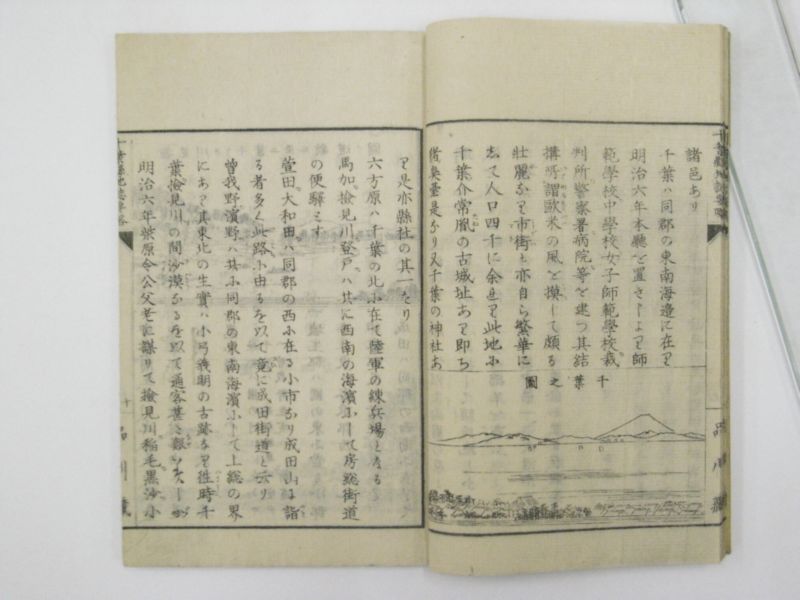 諸邑あり
千葉ハ同郡の東南海邉に在り
明治六年本廳を置きしより師
範學校中學校女子師範學校裁
判所警察署病院等を建つ其結
構所謂歐米の風を摸して頗る
壮麗なり市街も亦自ら繁華に
して人口四千に余れり此地ハ
千葉介常胤の古城址あり即ち
猪鼻臺是なり又千葉の神社あ
千葉之圖
り是亦縣社の其一なり
六方原ハ千葉の北に在て陸軍の練兵場となる
馬加検見川登戸ハ共に西南の海濱にして房総街道
の便驛とす
萱田大和田ハ同郡の西に在る小市なり成田山に詣
る者多く此路に由るを以て竟に成田街道と云り
曽我野濱野ハ共に同郡の東南海濱にして上総の界
にあり其東北の生實ハ小弓義明の古跡なり往時千
葉検見川の間沙漠なるを以て通客甚た艱めり
明治六年柴原令公父老に謀りて検見川稲毛黒沙に
十
品川藏